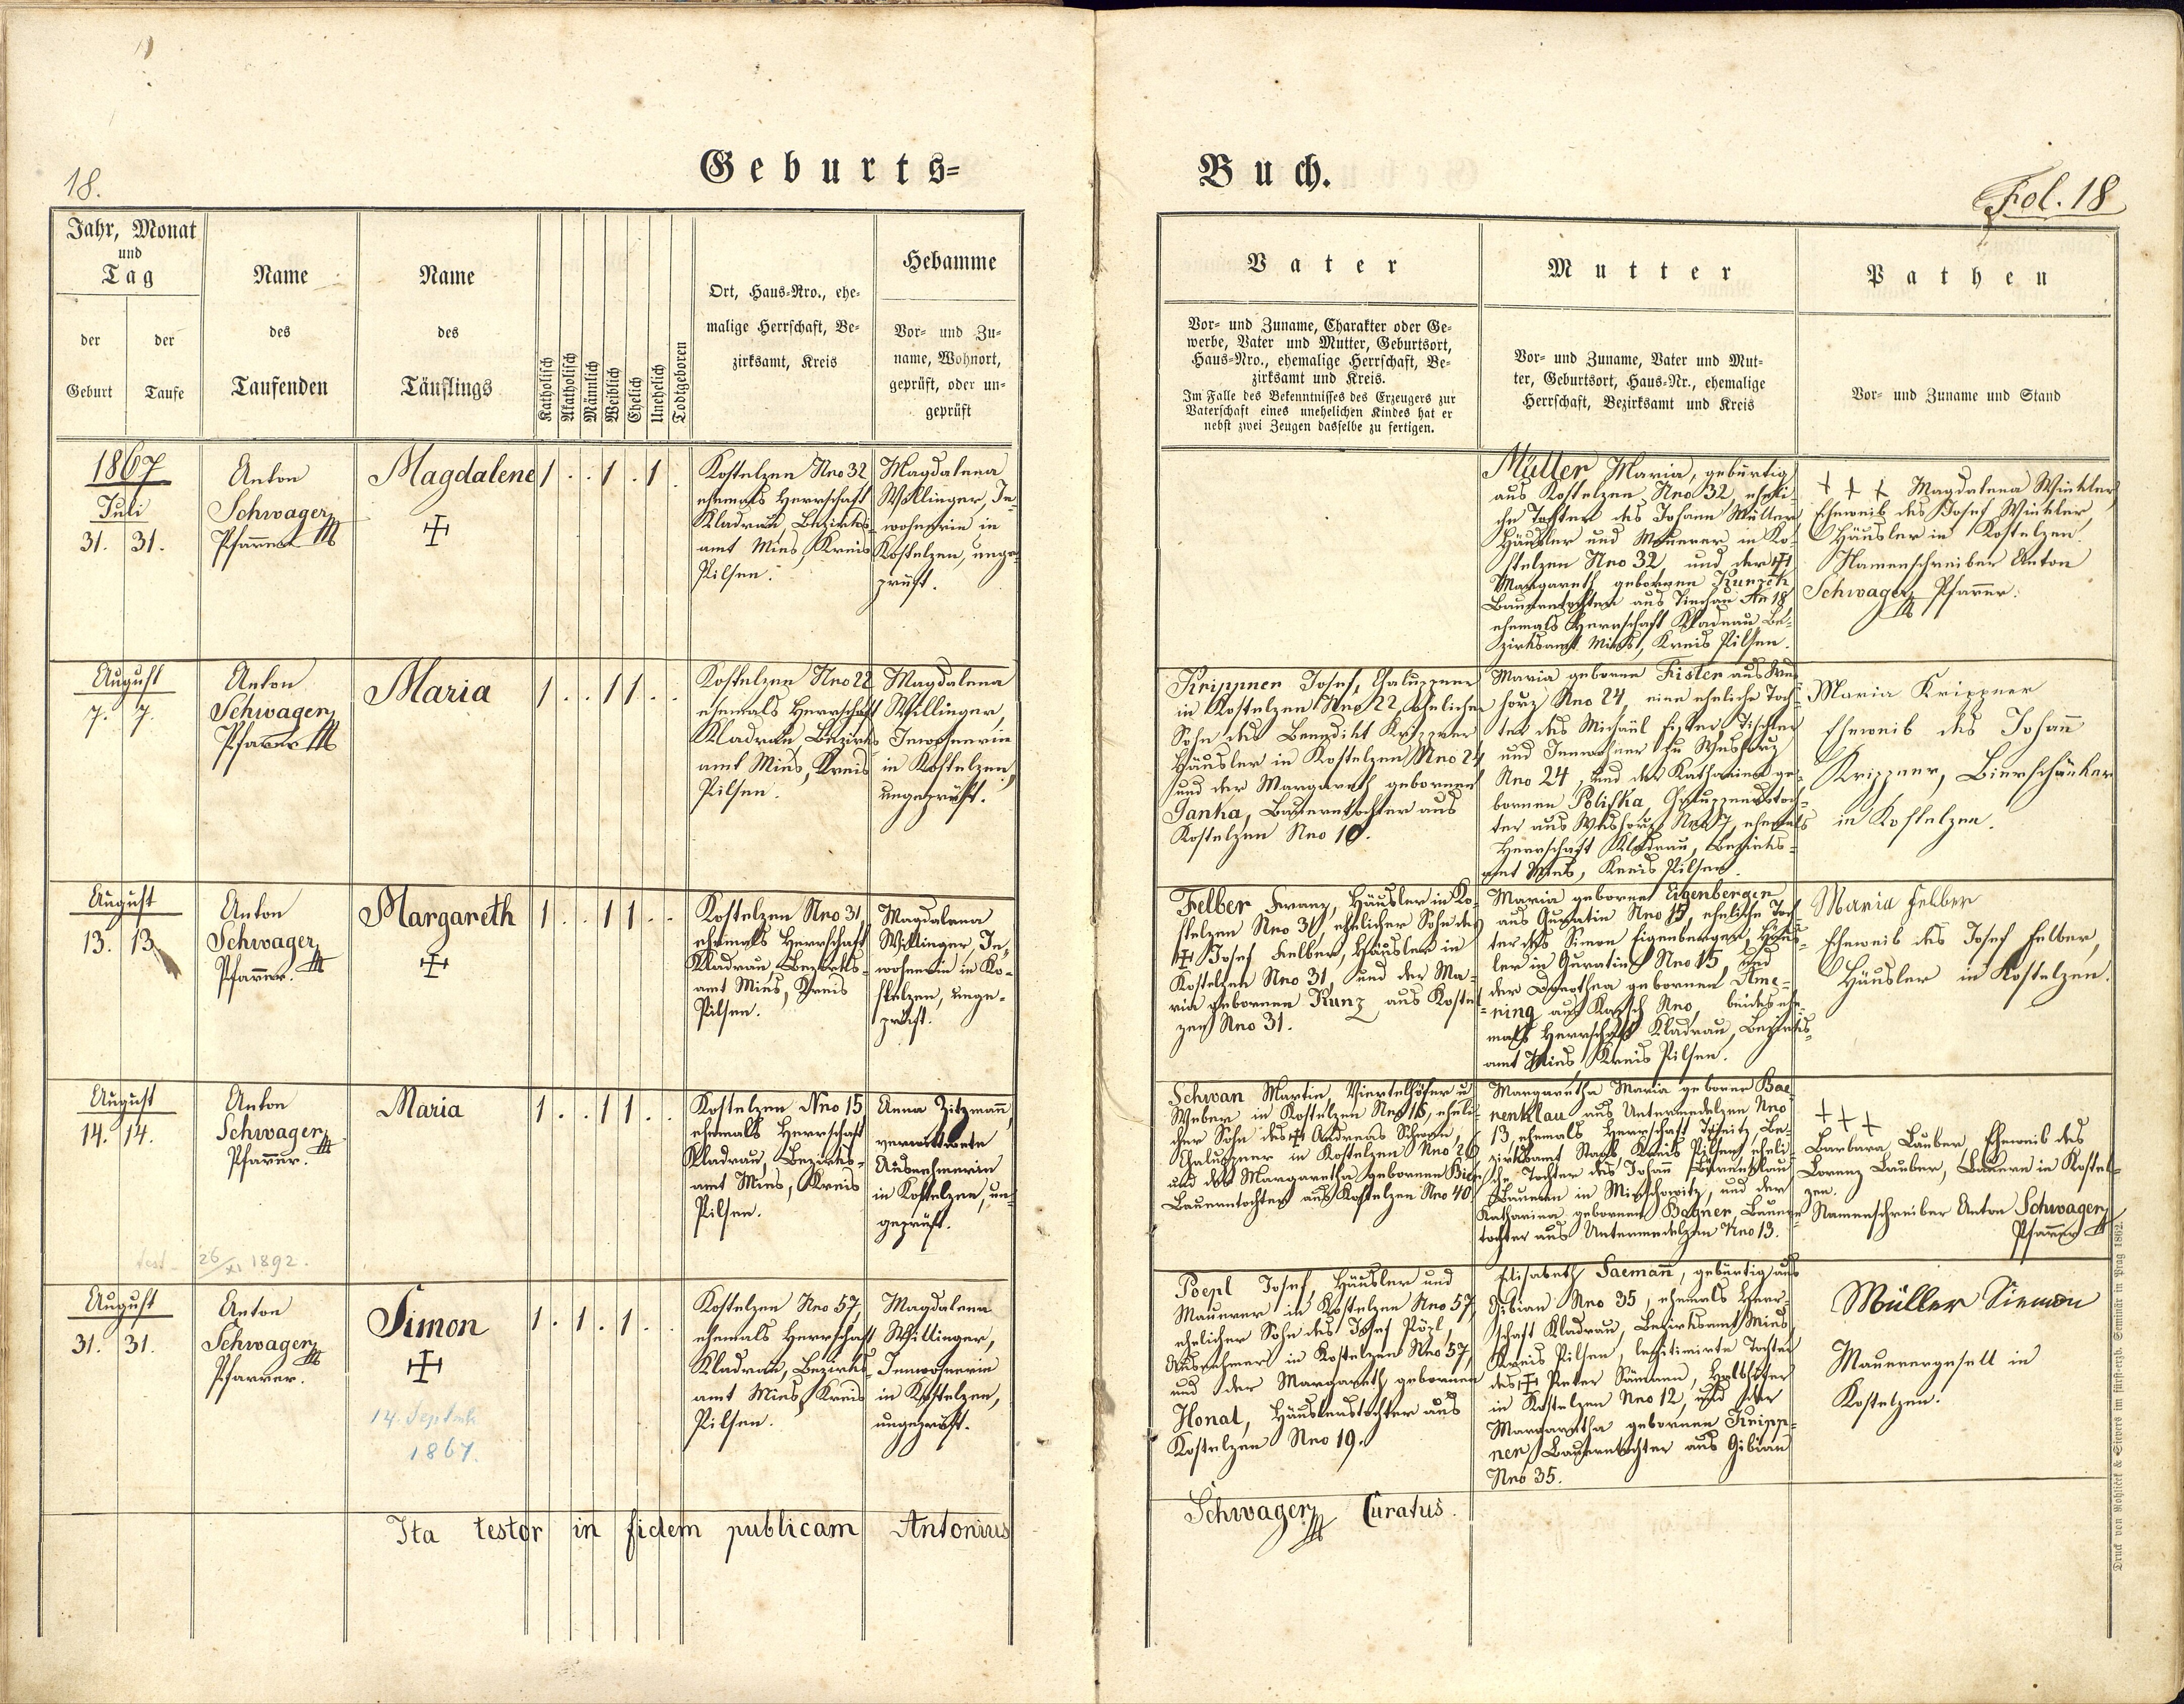 18.
Geburts=
Buch.
Fol. 18
Jahr, Monat
und
Tag
der
Geburt
der
Taufe
Name
des
Taufenden
Name
des
Täuflings
Katholisch
Akatholisch
Männlich
Weiblich
Ehelich
Unehelich
Todtgeboren
Ort, Haus=Nro., ehe=
malige Herrschaft, Be=
zirksamt, Kreis
Hebamme
Vor= und Zu=
name, Wohnort,
geprüft, oder un=
geprüft
Vater
Vor= und Zuname, Charakter oder Ge=
werbe, Vater und Mutter, Geburtsort,
Haus=Nro., ehemalige Herrschaft, Be=
zirksamt und Kreis.
Im Falle des Bekenntnisses des Erzeugers zur
Vaterschaft eines unehelichen Kindes hat er
nebst zwei Zeugen dasselbe zu fertigen.
Mutter
Vor= und Zuname, Vater und Mut=
ter, Geburtsort, Haus=Nr., ehemalige
Herrschaft, Bezirksamt und Kreis
Pathen
Vor= und Zuname und Stand
1867
Juli
31. 31.
Anton
Schwager
Pfarrer
Magdalene
1 . . 1 . 1 .
Kostelzen Nro 32
ehemals Herrschaft
Kladrau, Bezirks=
amt Mies, Kreis
Pilsen.
Magdalena
Willinger, In=
wohnerin in
Kostelzen, unge=
prüft.
Müller Maria, gebürtig
aus Kostelzen Nro 32, eheli=
che Tochter des Johann Müller
Häusler und Maurer in Ko=
stelzen Nro 32, und der
Margareth gebornen
Bauerntochter aus Nr 18
ehemals Herrschaft Kladrau Be=
zirksamt Mies, Kreis Pilsen.
+ + + Magdalena Winkler,
Eheweib des Josef Winkler,
Häusler in Kostelzen.
Namenschreiber Anton
Schwager, Pfarrer.
August
7. 7.
Anton
Schwager,
Pfarrer
Maria
1 . . 1 1 . .
Kostelzen Nro 22
ehemals Herrschaft
Kladrau, Bezirks
amt Mies, Kreis
Pilsen.
Magdalena
Willinger,
Inwohnerin
in Kostelzen,
ungeprüft.
Krippner Josef, Chaluppner
in Kostelzen Nro 22, ehelicher
Sohn des Benedikt Krippner
Häusler in Kostelzen Nro 24
und der Margareth gebornen
Janka, Bauerntochter aus
Kostelzen Nro 10.
Maria geborne Fister aus
Nro 24, eine eheliche Toch=
ter des Michael Fister, Tischler
und Inwohner zu
Nro 24, und der Katharina ge=
bornen Polifka, Chaluppnerstoch=
ter aus ehemals
Herrschaft Kladrau, Bezirks=
amt Mies, Kreis Pilsen.
Maria Krippner
Eheweib des Johann
Krippner, Bierschänker
in Kostelzen.
August
13. 13.
Anton
Schwager
Pfarrer.
Margareth
1 . . 1 1 . .
Kostelzen Nro 31,
ehemals Herrschaft
Kladrau Bezirks=
amt Mies, Kreis
Pilsen.
Magdalena
Willinger, In=
wohnerin in Ko=
stelzen, unge=
prüft.
Felber Franz, Häusler in Ko=
stelzen Nro 31, ehelicher Sohn des
Josef Felber, Häusler in
Kostelzen Nro 31, und der Ma=
ria gebornen Kunz aus Kostel=
zen Nro 31.
Maria geborne Eigenberger
aus Guratin Nro 15, eheliche Toch=
ter des Simon Eigenberger, Häus=
ler in Guratin Nro 15, und
der Dorothea gebornen Ame=
ning aus Nro beides ehe=
mals Herrschaft Kladrau, Bezirks=
amt Mies, Kreis Pilsen.
Maria Felber
Eheweib des Josef Felber,
Häusler in Kostelzen.
August
14. 14.
Anton
Schwager
Pfarrer.
Maria
1 . . 1 1 . .
Kostelzen Nro 15
ehemals Herrschaft
Kladrau, Bezirks=
amt Mies, Kreis
Pilsen.
Anna Zitzmann,
verwittwete
Ausnehmerin
in Kostelzen, un=
geprüft.
26/XI 1892.
Schwan Martin Viertelhöfer u
Weber in Kostelzen Nro 15, eheli=
cher Sohn des Andreas Schwan,
Chaluppner in Kostelzen Nro 26
und der Margaretha gebornen
Bauerntochter aus Kostelzen Nro 40.
Margaretha Maria geborne Bae=
renklau aus Untermedelzen Nro
13, ehemals Herrschaft Be=
zirksamt Staab, Kreis Pilsen, eheli=
che Tochter des Johann Bärenklau
Bauern in und der
Katharina gebornen Bauern=
tochter aus Untermedelzen Nro 13.
+ + +
Barbara Lauber, Eheweib des
Lorenz Lauber, Bauern in Kostel=
zen.
Namenschreiber Anton Schwager,
Pfarrer
August
31. 31.
Anton
Schwager,
Pfarrer.
Simon
14. Septemb
1867.
1 . 1 . 1 . .
Kostelzen Nro 57,
ehemals Herrschaft
Kladrau, Bezirks=
amt Mies, Kreis
Pilsen.
Magdalena
Willinger,
Innwohnerin
in Kostelzen,
ungeprüft.
Poepl Josef, Häusler und
Maurer in Kostelzen Nro 57,
ehelicher Sohn des Josef Pöpl,
Ausnehmer in Kostelzen Nro 57,
und der Margareth gebornen
Honal, Häuslerstochter aus
Kostelzen Nro 19.
Elisabeth Saemann, gebürtig aus
Gibian Nro 35, ehemals Herr=
schaft Kladrau, Bezirksamt Mies,
Kreis Pilsen, legitimirte Tochter
des Peter Sämann,
in Kostelzen Nro 12, und der
Margaretha gebornen Kripp=
ner, Bauerntochter aus Gibian
Nro 35.
Müller Siemon
Maurergesell in
Kostelzen.
Ita testor in fidem publicam Antonius
Schwager, Curatus.
Druck von Rohliček & Sievers im fürst-erzb. Seminär in Prag 1862.